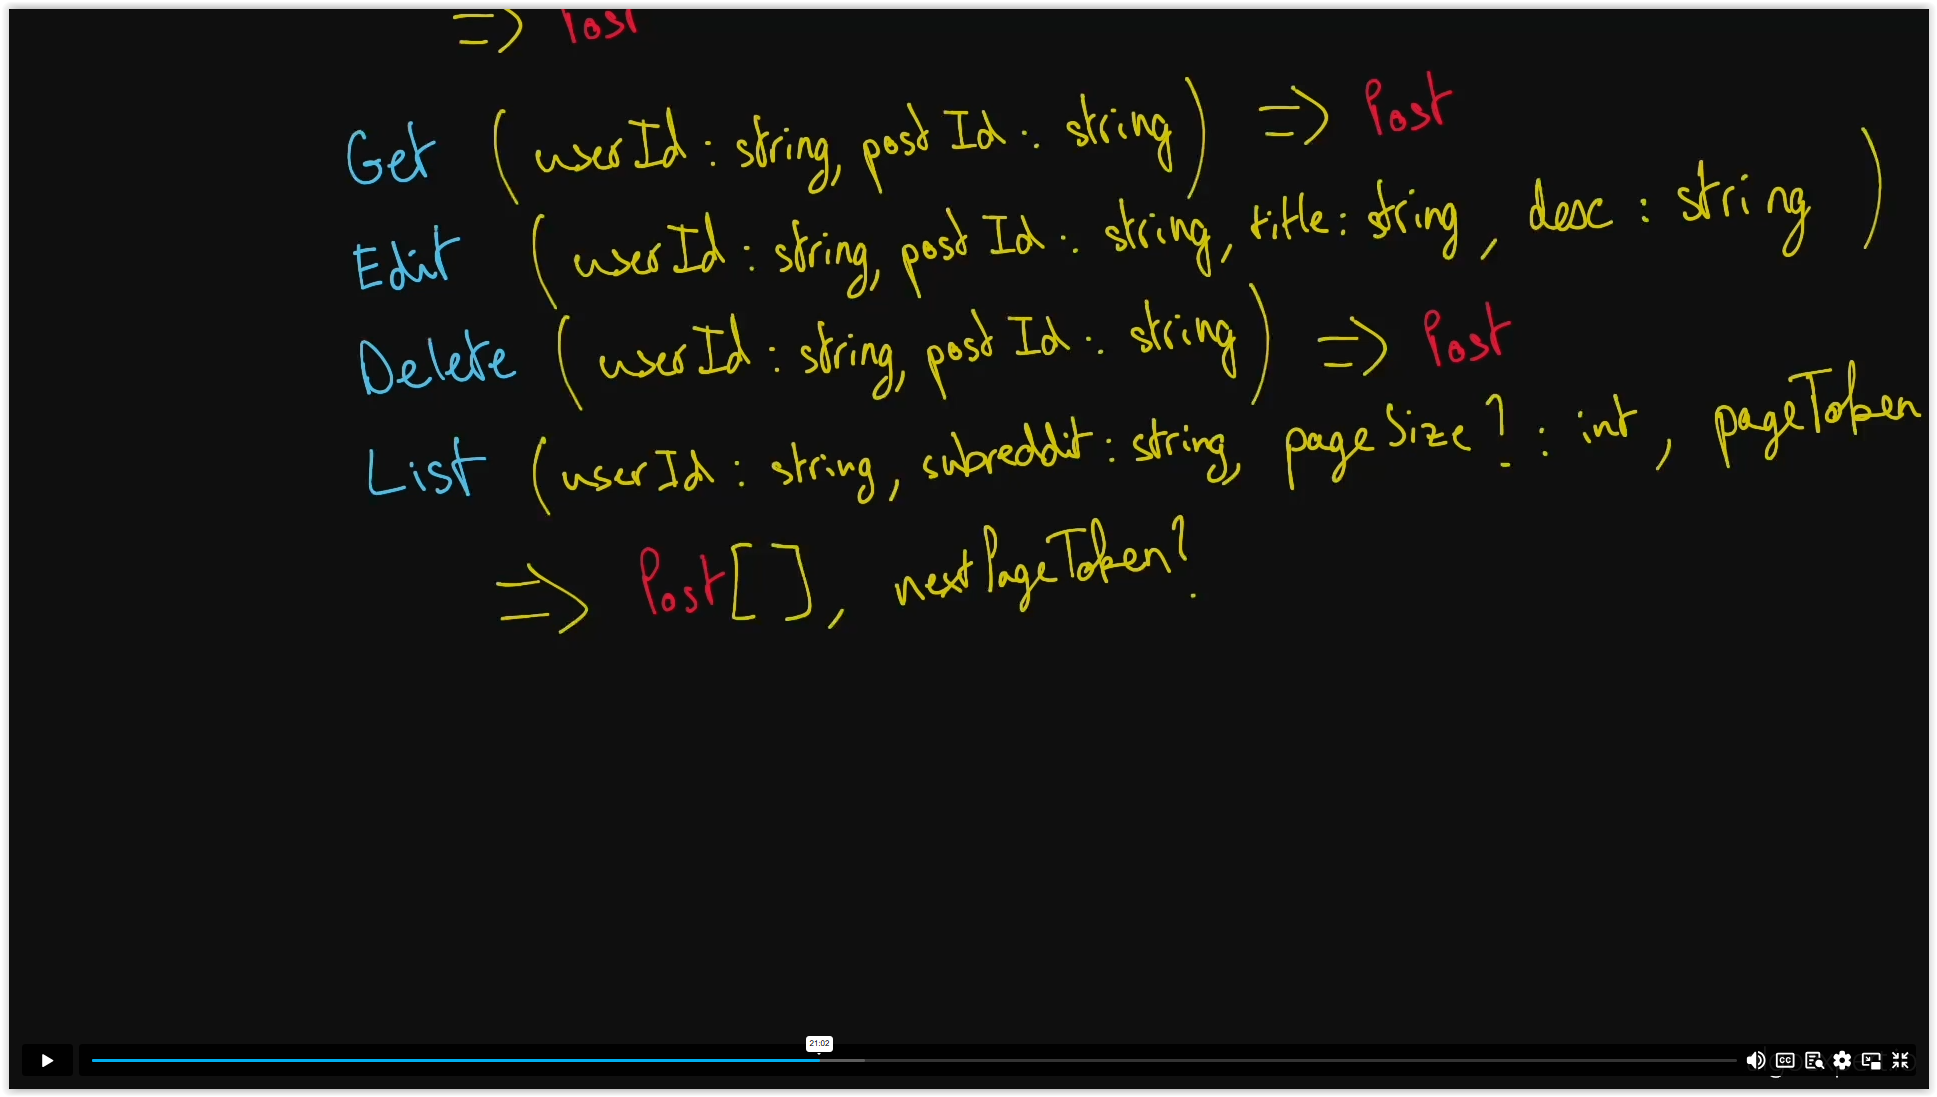 => Post
Get (userId : string, postId : string) => Post
Edit (userId : string, postId : string, title : string, desc : string)
Delete (userId : string, postId : string) => Post
List (userId : string, subreddit : string, pageSize? : int, pageToken
=> Post[], nextPageToken?
21:02
CC